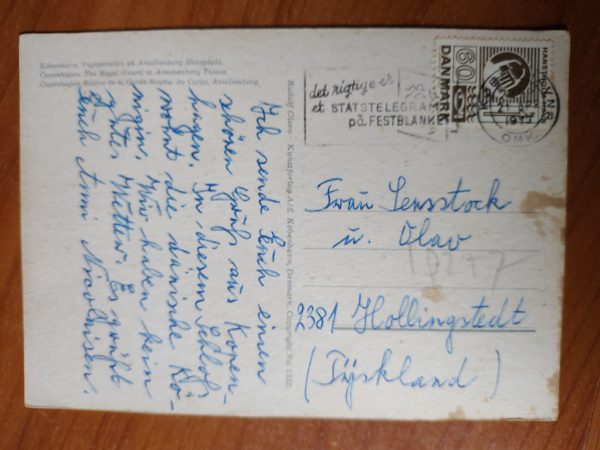 København. Vagtparaden på Amalienborg Slotsplads
Copenhagen. The Royal Guard at Amalienborg Palace
Copenhague. Relève de la Garde Royale du Corps, Amalienborg.
Ich sende Euch einen
schönen Gruß aus Kopen-
hagen. In diesem Schloß
wohnt die dänische Kö-
nigin. Wir haben kein
gutes Wetter. Es grüßt
Euch Anni Nicolaisen.
Rudolf Olsen Kunstforlag A/S, København, Denmark. Copyright No. 1522.
det rigtige er
et STATSTELEGRAM
på FESTBLANKET
DANMARK
60
OMK
Frau Sensstock
u. Olav
2381 Hollingstedt
(Tyskland)